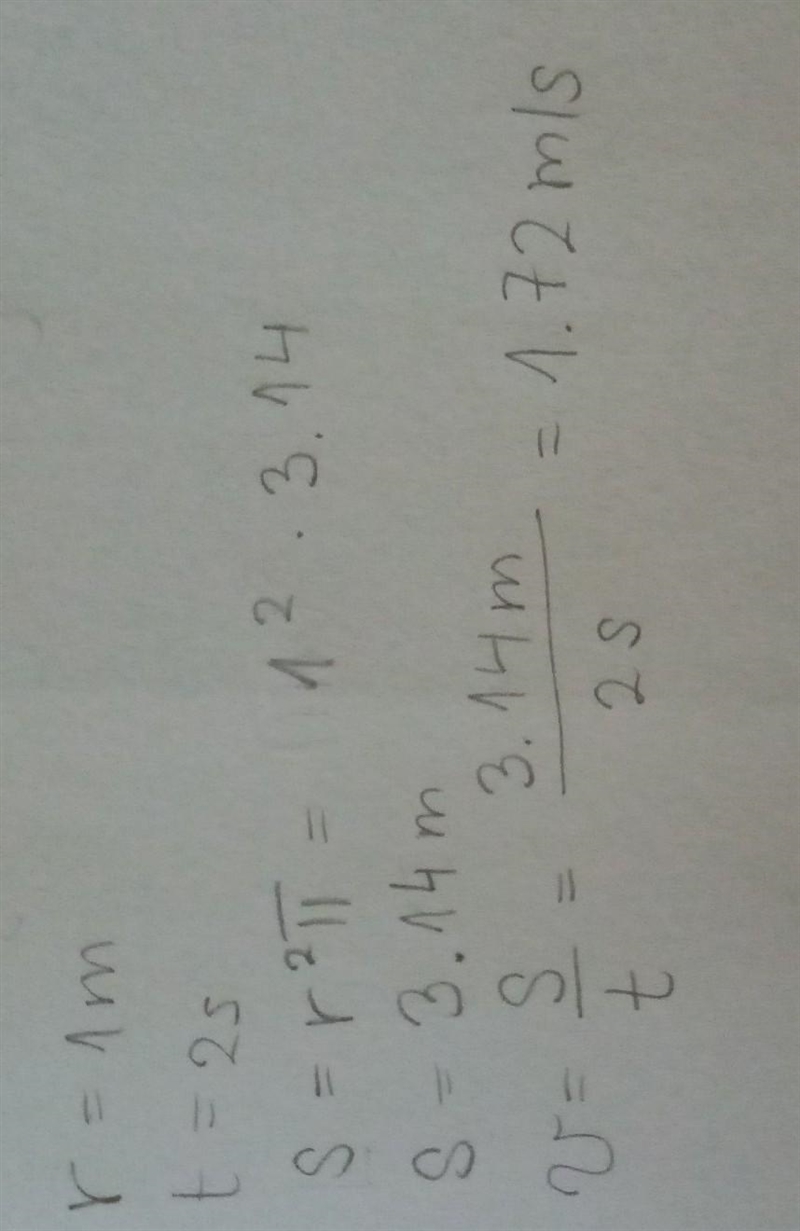 r = 1m
t = 2s
S = r²π = 1² · 3.14
S = 3.14m
v = S/t = 3.14m/2s = 1.72 m/s